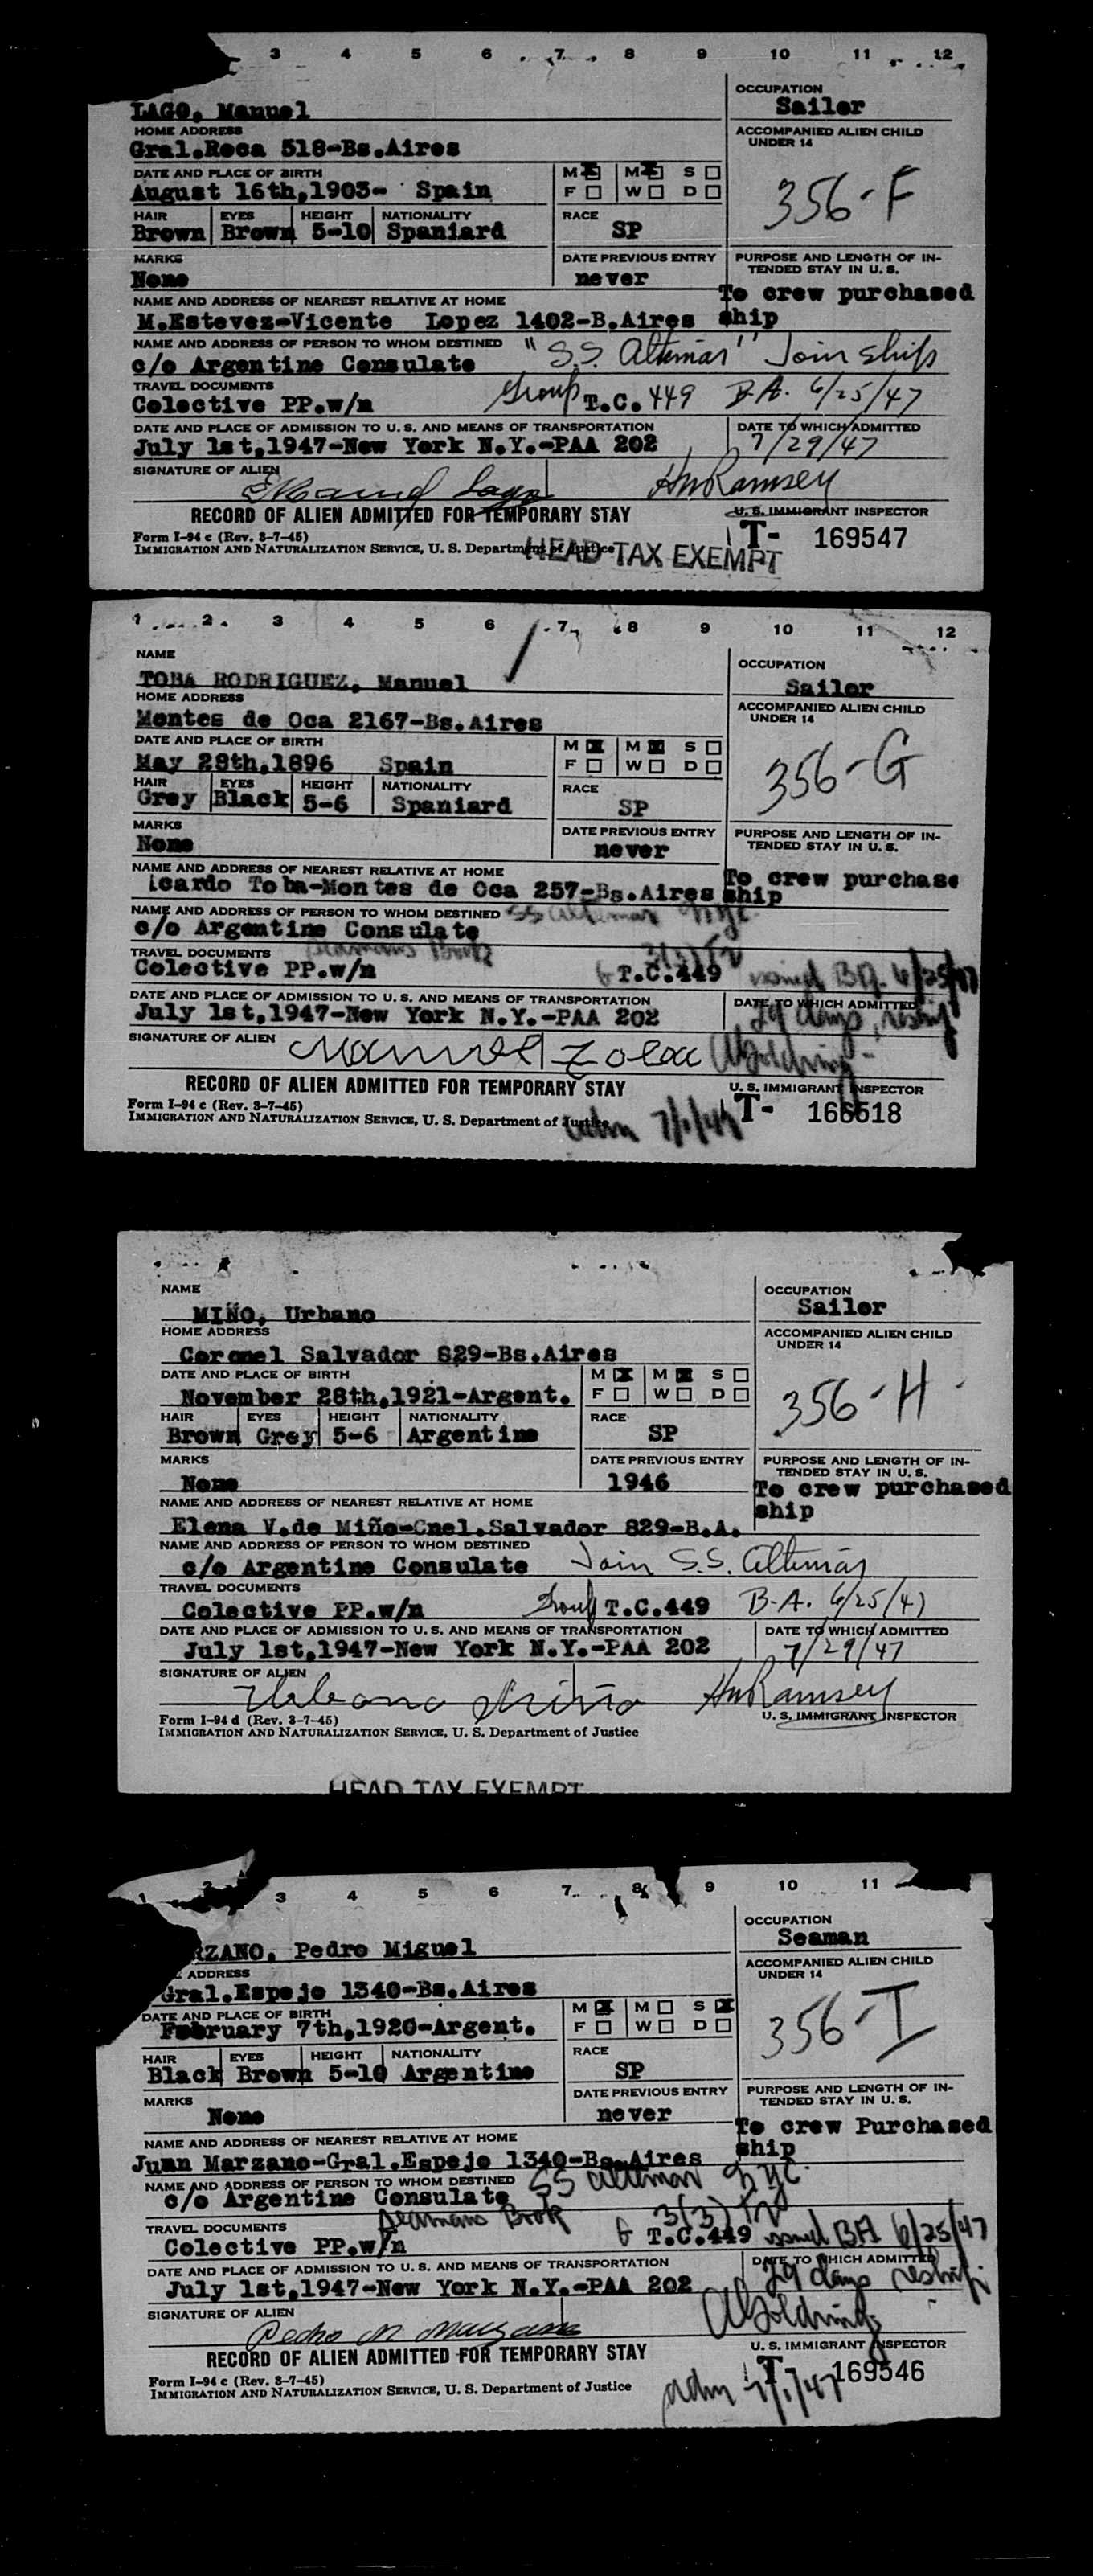 3 4 5 6 7 8 9 10 11 12
LAGO, Manuel
OCCUPATION
Sailor
HOME ADDRESS
Gral.Roca 518-Bs.Aires
ACCOMPANIED ALIEN CHILD
UNDER 14
356-F
DATE AND PLACE OF BIRTH
August 16th,1903- Spain
M M S
F W D
HAIR EYES HEIGHT NATIONALITY RACE
Brown Brown 5-10 Spaniard SP
MARKS DATE PREVIOUS ENTRY
None never
PURPOSE AND LENGTH OF IN-
TENDED STAY IN U. S.
To crew purchased
ship
NAME AND ADDRESS OF NEAREST RELATIVE AT HOME
M.Estevez-Vicente Lopez 1402-B.Aires
NAME AND ADDRESS OF PERSON TO WHOM DESTINED
c/o Argentine Consulate "S.S. Altimar" Join Ship
TRAVEL DOCUMENTS
Colective PP.w/n Group T.C. 449 B.A. 6/25/47
DATE AND PLACE OF ADMISSION TO U. S. AND MEANS OF TRANSPORTATION
July 1st,1947-New York N.Y.-PAA 202
DATE TO WHICH ADMITTED
7/29/47
SIGNATURE OF ALIEN
Manuel Lago HmRamsey
RECORD OF ALIEN ADMITTED FOR TEMPORARY STAY
U. S. IMMIGRANT INSPECTOR
Form I-94 c (Rev. 3-7-45)
IMMIGRATION AND NATURALIZATION SERVICE, U. S. Department of Justice
T- 169547
HEAD TAX EXEMPT
1 2 3 4 5 6 7 8 9 10 11 12
NAME
TOBA RODRIGUEZ, Manuel
OCCUPATION
Sailor
HOME ADDRESS
Montes de Oca 2167-Bs.Aires
ACCOMPANIED ALIEN CHILD
UNDER 14
356-G
DATE AND PLACE OF BIRTH
May 28th,1896 Spain
M M S
F W D
HAIR EYES HEIGHT NATIONALITY RACE
Grey Black 5-6 Spaniard SP
MARKS DATE PREVIOUS ENTRY
None never
PURPOSE AND LENGTH OF IN-
TENDED STAY IN U. S.
To crew purchase
ship
NAME AND ADDRESS OF NEAREST RELATIVE AT HOME
icardo Toba-Montes de Oca 257-Bs.Aires
NAME AND ADDRESS OF PERSON TO WHOM DESTINED SS Altimar NYC.
c/o Argentine Consulate
TRAVEL DOCUMENTS Seamans Book 3(3)
Colective PP.w/n G T.C.449 issued BA 6/25/47
DATE AND PLACE OF ADMISSION TO U. S. AND MEANS OF TRANSPORTATION
July 1st,1947-New York N.Y.-PAA 202
DATE TO WHICH ADMITTED
29 days reship
SIGNATURE OF ALIEN Manuel Toba AGoldring
RECORD OF ALIEN ADMITTED FOR TEMPORARY STAY
U. S. IMMIGRANT INSPECTOR
Form I-94 c (Rev. 3-7-45)
IMMIGRATION AND NATURALIZATION SERVICE, U. S. Department of Justice
adm 7/1/47 T- 166618
NAME
MIÑO, Urbano
OCCUPATION
Sailor
HOME ADDRESS
Coronel Salvador 829-Bs.Aires
ACCOMPANIED ALIEN CHILD
UNDER 14
356-H
DATE AND PLACE OF BIRTH
November 28th,1921-Argent.
M M S
F W D
HAIR EYES HEIGHT NATIONALITY RACE
Brown Grey 5-6 Argentine SP
MARKS DATE PREVIOUS ENTRY
None 1946
PURPOSE AND LENGTH OF IN-
TENDED STAY IN U. S.
To crew purchased
ship
NAME AND ADDRESS OF NEAREST RELATIVE AT HOME
Elena V.de Miño-Cnel.Salvador 829-B.A.
NAME AND ADDRESS OF PERSON TO WHOM DESTINED
c/o Argentine Consulate Join S.S. Altimar
TRAVEL DOCUMENTS
Colective PP.w/n Group T.C.449 B.A. 6/25/47
DATE AND PLACE OF ADMISSION TO U. S. AND MEANS OF TRANSPORTATION
July 1st,1947-New York N.Y.-PAA 202
DATE TO WHICH ADMITTED
7/29/47
SIGNATURE OF ALIEN
Urbano Miño HmRamsey
U. S. IMMIGRANT INSPECTOR
Form I-94 d (Rev. 3-7-45)
IMMIGRATION AND NATURALIZATION SERVICE, U. S. Department of Justice
HEAD TAX EXEMPT
1 2 3 4 5 6 7 8 9 10 11
RZANO, Pedro Miguel
OCCUPATION
Seaman
ADDRESS
Gral.Espejo 1340-Bs.Aires
ACCOMPANIED ALIEN CHILD
UNDER 14
356-I
DATE AND PLACE OF BIRTH
February 7th,1920-Argent.
M M S
F W D
HAIR EYES HEIGHT NATIONALITY RACE
Black Brown 5-10 Argentine SP
MARKS DATE PREVIOUS ENTRY
None never
PURPOSE AND LENGTH OF IN-
TENDED STAY IN U. S.
To crew Purchased
ship
NAME AND ADDRESS OF NEAREST RELATIVE AT HOME
Juan Marzano-Gral.Espejo 1340-Bs.Aires
NAME AND ADDRESS OF PERSON TO WHOM DESTINED SS Altimar NYC.
c/o Argentine Consulate
Seamans Book 3(3)
TRAVEL DOCUMENTS
Colective PP.w/n G T.C.449 issued BA 6/25/47
DATE AND PLACE OF ADMISSION TO U. S. AND MEANS OF TRANSPORTATION
July 1st,1947-New York N.Y.-PAA 202
DATE TO WHICH ADMITTED
29 days reship
SIGNATURE OF ALIEN
Pedro M Marzano AGoldring
RECORD OF ALIEN ADMITTED FOR TEMPORARY STAY
U. S. IMMIGRANT INSPECTOR
Form I-94 c (Rev. 3-7-45)
IMMIGRATION AND NATURALIZATION SERVICE, U. S. Department of Justice
adm 7/1/47 T- 169546